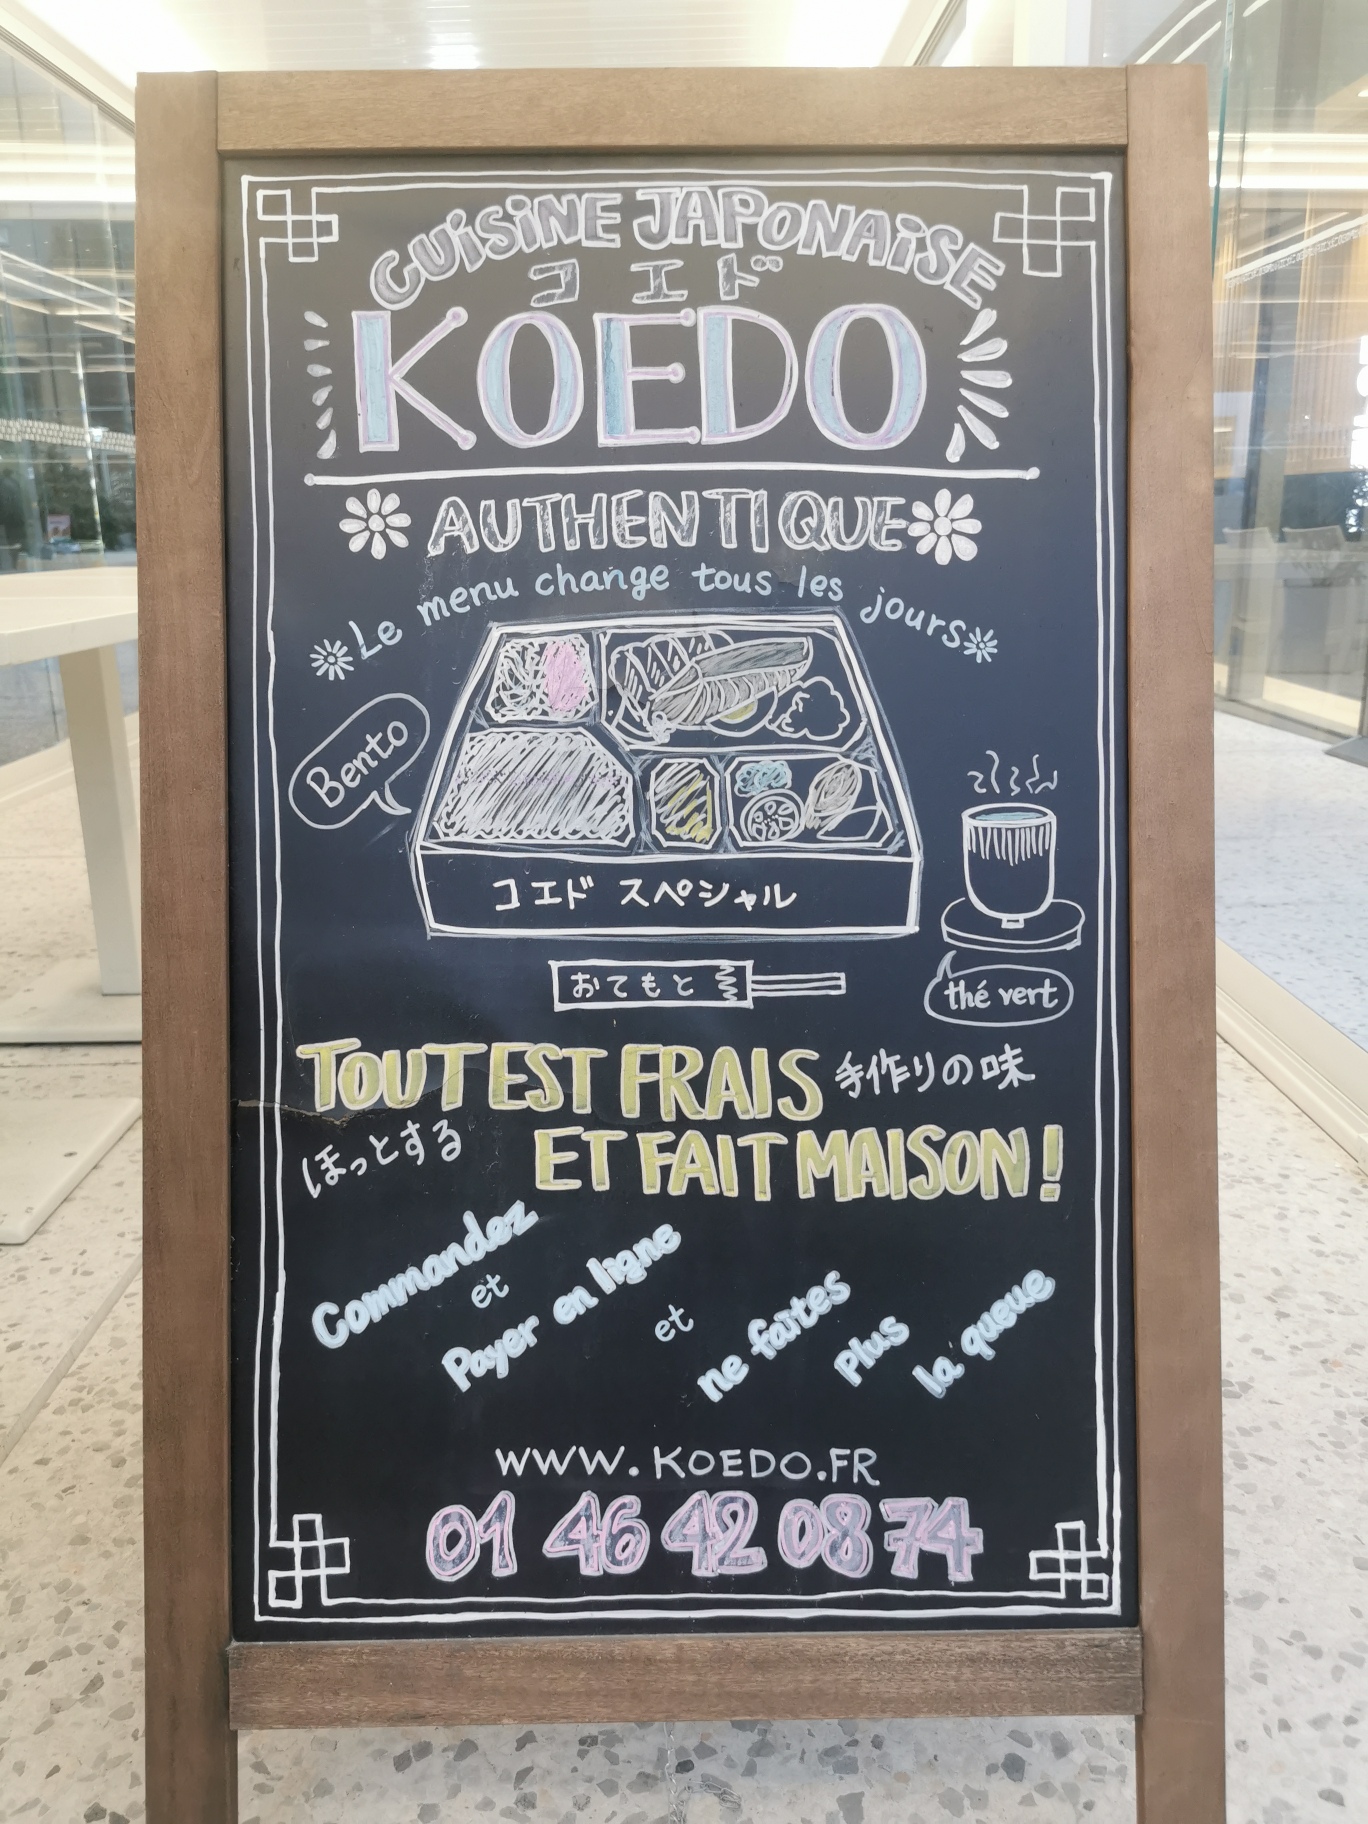 CUISINE JAPONAISE
コエド
KOEDO
AUTHENTIQUE
Le menu change tous les jours
Bento
コエド スペシャル
おてもと
thé vert
TOUT EST FRAIS 手作りの味
ほっとする ET FAIT MAISON !
Commandez
et
Payer en ligne
et
ne faites
Plus
la queue
WWW.KOEDO.FR
01 46 42 08 74